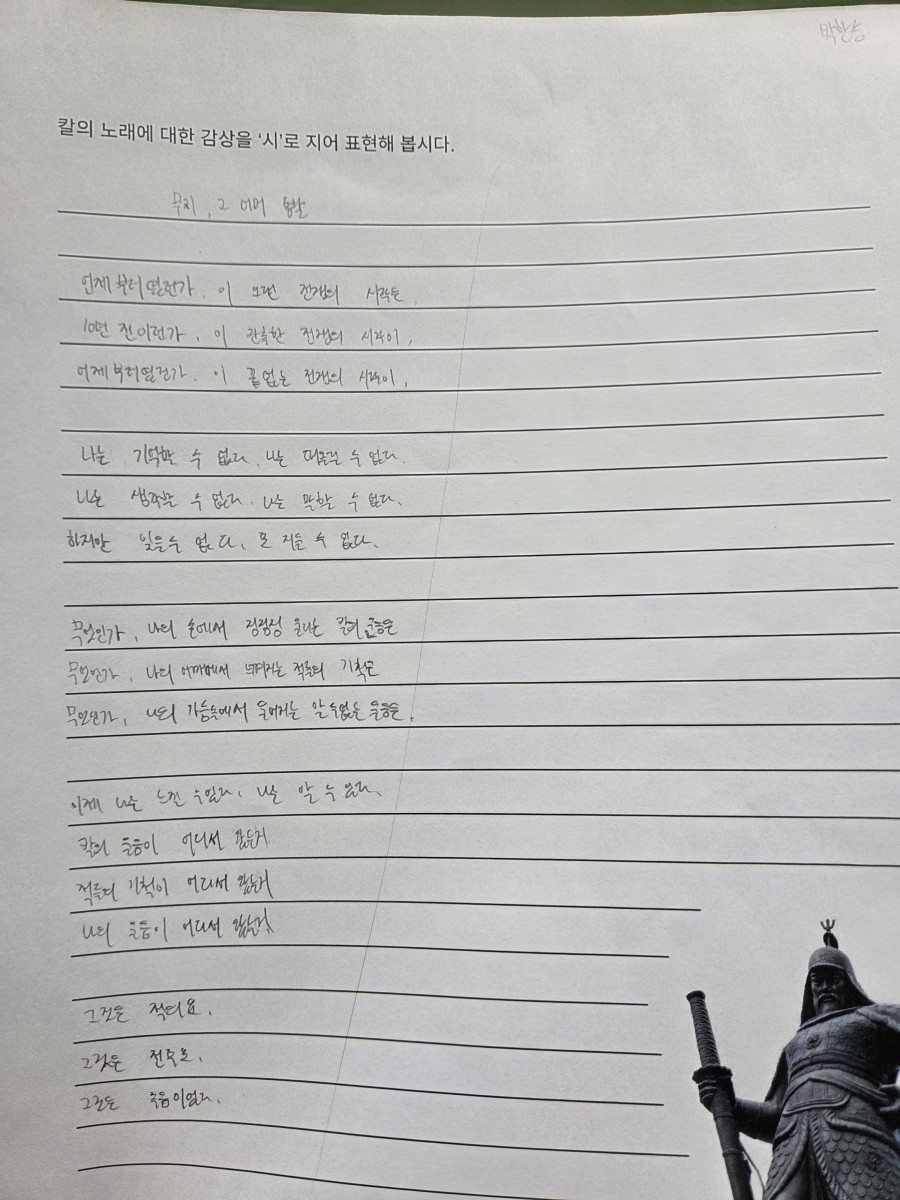 박한승
칼의 노래에 대한 감상을 '시'로 지어 표현해 봅시다.
무지, 그 너머
언제부터였던가, 이 오랜 전쟁의 시작은,
10년 전이런가, 이 참혹한 전쟁의 시작이,
어제부터였던가, 이 끝없는 전쟁의 시작이,
나는 기억할 수 없다, 나는 떠올릴 수 없다.
나는 생각할 수 없다. 나는 말할 수 없다.
하지만 잊을 수 없다, 또 지울 수 없다.
무엇인가, 나의 손에서 징징징 우는 칼의 울음은
무엇인가, 나의 어깨에서 느껴지는 적들의 기척은
무엇인가, 나의 가슴속에서 알 수 없는 울음은,
이제 나는 수 있다, 나는 알 수 있다,
칼의 울음이 어디서 왔는지
적들의 기척이 어디서 왔는지
나의 울음이 어디서 왔는지
그것은 적의요,
그것은
그것은 죽음이었다.